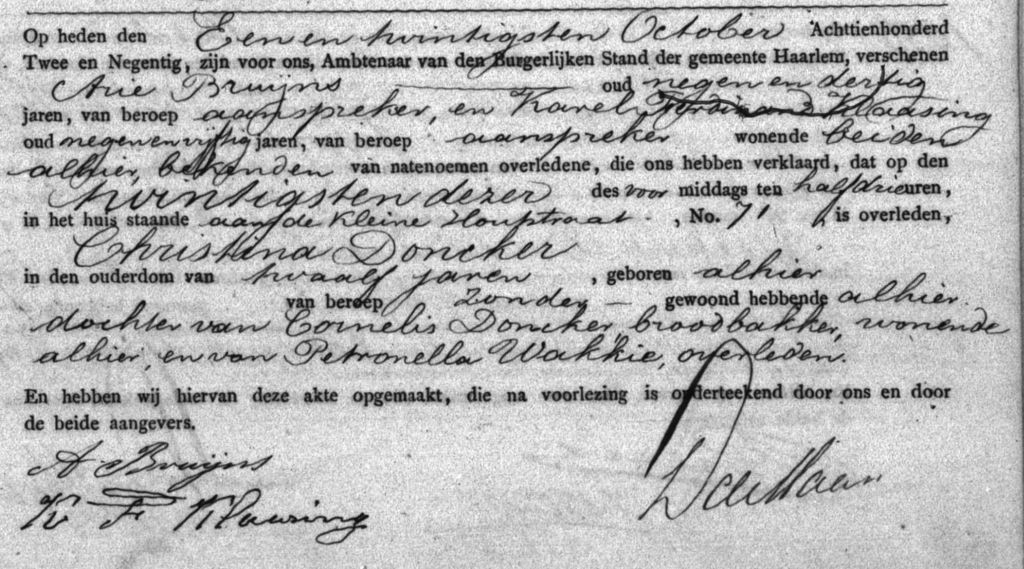 Op heden den Eenentwintigsten October Achttienhonderd
Twee en Negentig, zijn voor ons, Ambtenaar van den Burgerlijken Stand der gemeente Haarlem, verschenen
Arie Bruijns oud negen en dertig
jaren, van beroep aanspreker, en Karel Ferdinand Klaasing
oud negen en vijftig jaren, van beroep aanspreker wonende beiden
alhier, bekenden van natenoemen overledene, die ons hebben verklaard, dat op den
twintigsten dezer des voor middags ten half drie uren,
in het huis staande aan de Kleine Houtstraat, No. 71, is overleden,
Christina Doncker
in den ouderdom van twaalf jaren, geboren alhier
van beroep zonder — gewoond hebbende alhier
dochter van Cornelis Doncker, broodbakker, wonende
alhier, en van Petronella Wakkie, overleden.
En hebben wij hiervan deze akte opgemaakt, die na voorlezing is onderteekend door ons en door
de beide aangevers.
A Bruijns
K F Klaasing